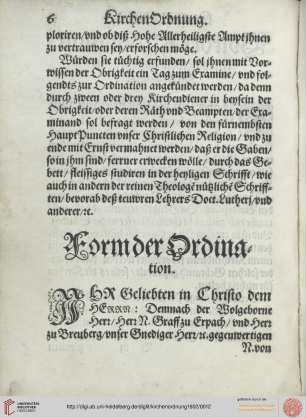 6 KirchenOrdnung.
ploriren/ vnd ob diß Hohe Allerheiligste Ampt jhnen
zu vertrauwen sey/ erforschen möge.
Würden sie tüchtig erfunden/ sol jhnen mit Vor-
wissen der Obrigkeit ein Tag zum Examine/ vnd fol-
gendts zur Ordination angekündet werden/ da denn
durch zween oder drey Kirchendiener in beysein der
Obrigkeit/ oder deren Räth vnd Beampten/ der Exa-
minand sol befragt werden/ von den fürnembsten
Haupt Puncten vnser Christlichen Religion/ vnd zu
ende mit Ernst vermahnet werden/ daß er die Gaben/
so in jhm sind/ ferrner erwecken wölle/ durch das Ge-
bett/ fleissiges studiren in der heyligen Schrifft/ wie
auch in andern der reinen Theologē nützlichē Schriff-
ten/ bevorab deß teuwren Lehrers Doct. Lutherj/ vnd
anderer/ ꝛc.
Form der Ordina-
tion.
IHR Geliebten in Christo dem
HERRN: Demnach der Wolgeborne
Herr/ Herr N. Graff zu Erpach/ vnd Herr
zu Breuberg/ vnser Gnediger Herr/ ꝛc. gegenwertigen
N. von
http://digi.ub.uni-heidelberg.de/diglit/kirchenordnung1602/0012